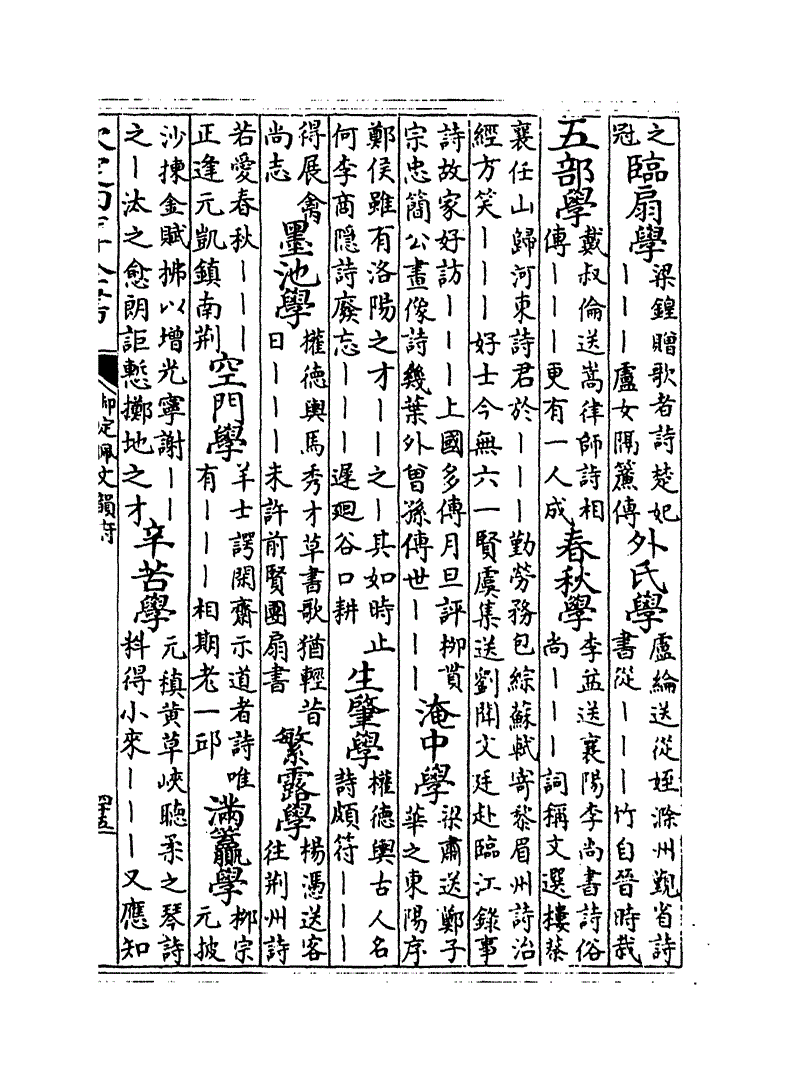 之
冠
臨扇學
梁鍠贈歌者詩楚妃
———盧女隔簾傳
外氏學
盧綸送從姪滁州覲省詩
書從———竹自晉時栽
五部學
戴叔倫送嵩律師詩相
傳———更有一人成
春秋學
李益送襄陽李尚書詩俗
尚———詞稱文選樓蔡
襄任山歸河東詩君於———勤勞務包綜蘇軾寄黎眉州詩治
經方笑———好士今無六一賢虞集送劉聞文廷赴臨江錄事
詩故家好訪———上國多傳月旦評柳貫
宗忠簡公畫像詩幾葉外曾孫傳世———
淹中學
梁肅送鄭子
華之東陽序
鄭侯雖有洛陽之才——之—其如時止
何李商隱詩廢忘———遲廻谷口耕
生肇學
權德輿古人名
詩頗符———
得展禽
尚志
墨池學
權德輿馬秀才草書歌猶輕昔
日———未許前賢團扇書
繁露學
楊憑送客
往荆州詩
若愛春秋———
正逢元凱鎮南荆
空門學
羊士諤閑齋示道者詩唯
有———相期老一邱
滿籯學
柳宗
元披
沙揀金賦拂以增光寧謝——
之—汰之愈朗詎慙擲地之才
辛苦學
元稹黄草峽聽柔之琴詩
料得小來———又應知
御定佩文韻府